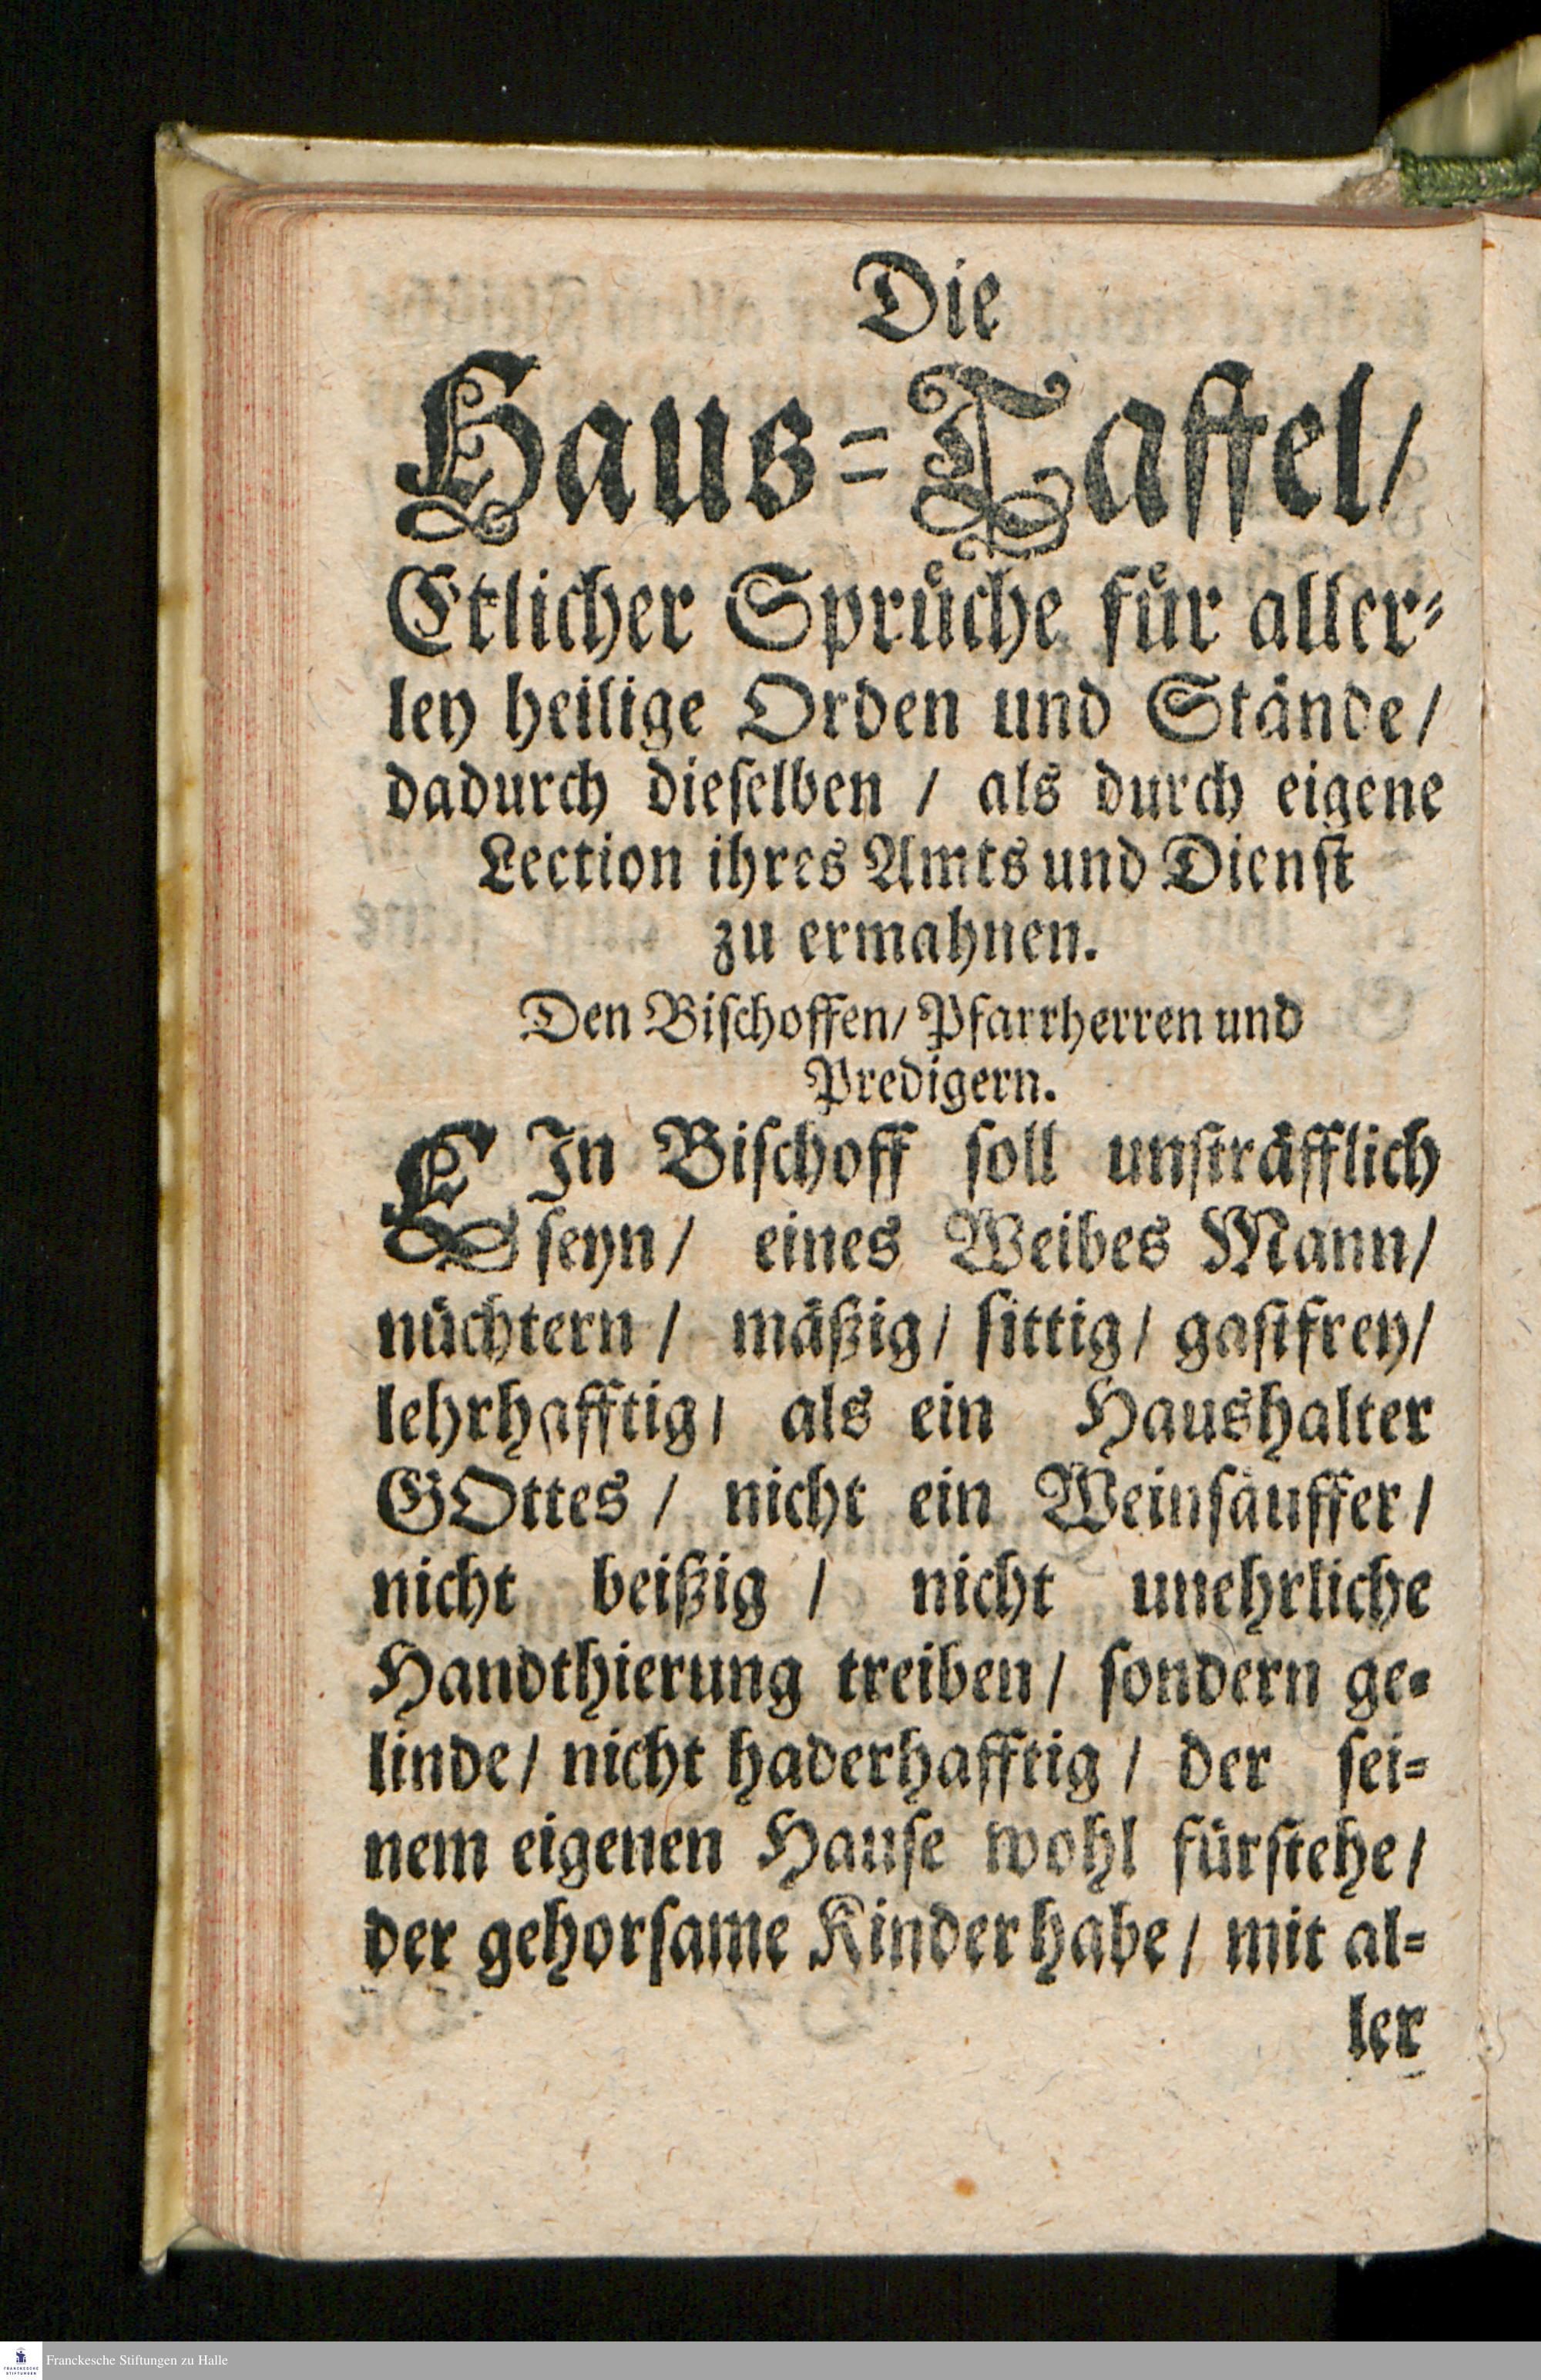 Die
Haus-Taffel/
Etlicher Sprüche für aller-
ley heilige Orden und Stände/
dadurch dieselben / als durch eigene
Lection ihres Amts und Dienst
zu ermahnen.
Den Bischoffen/ Pfarrherren und
Predigern.
EIn Bischoff soll unsträfflich
seyn/ eines Weibes Mann/
nüchtern / mäßig/ sittig/ gastfrey/
lehrhafftig/ als ein Haushalter
GOttes / nicht ein Weinsäuffer/
nicht beißig / nicht unehrliche
Handthierung treiben/ sondern ge-
linde/ nicht haderhafftig / der sei-
nem eigenen Hause wohl fürstehe/
der gehorsame Kinder habe/ mit al-
ler
FRANCKESCHE STIFTUNGEN
Franckesche Stiftungen zu Halle